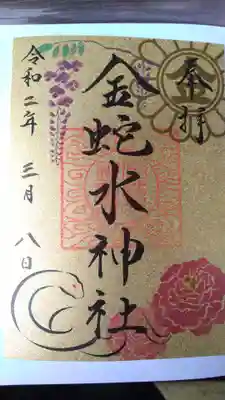 奉拝
金蛇水神社
令和二年 三月 八日